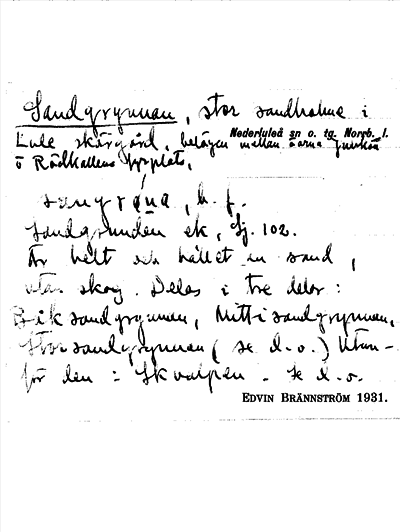 Sandgrynnan, stor sandholme i
Nederluleå sn o. tg. Norrb. l.
Lule skärgård, belägen mellan öarna Junkön
o Rödkallens fyrplats,
sungrøna, b. f.
Sandgrunden ek, Sj. 102.
Är helt och hållet en sand,
utan skog. Delas i tre delar:
Biksandgrynnan, Mittisandgrynnan,
Storsandgrynnan (se d. o.) Utan-
för den: Skvalpen. Se d. o.
EDVIN BRÄNNSTRÖM 1931.